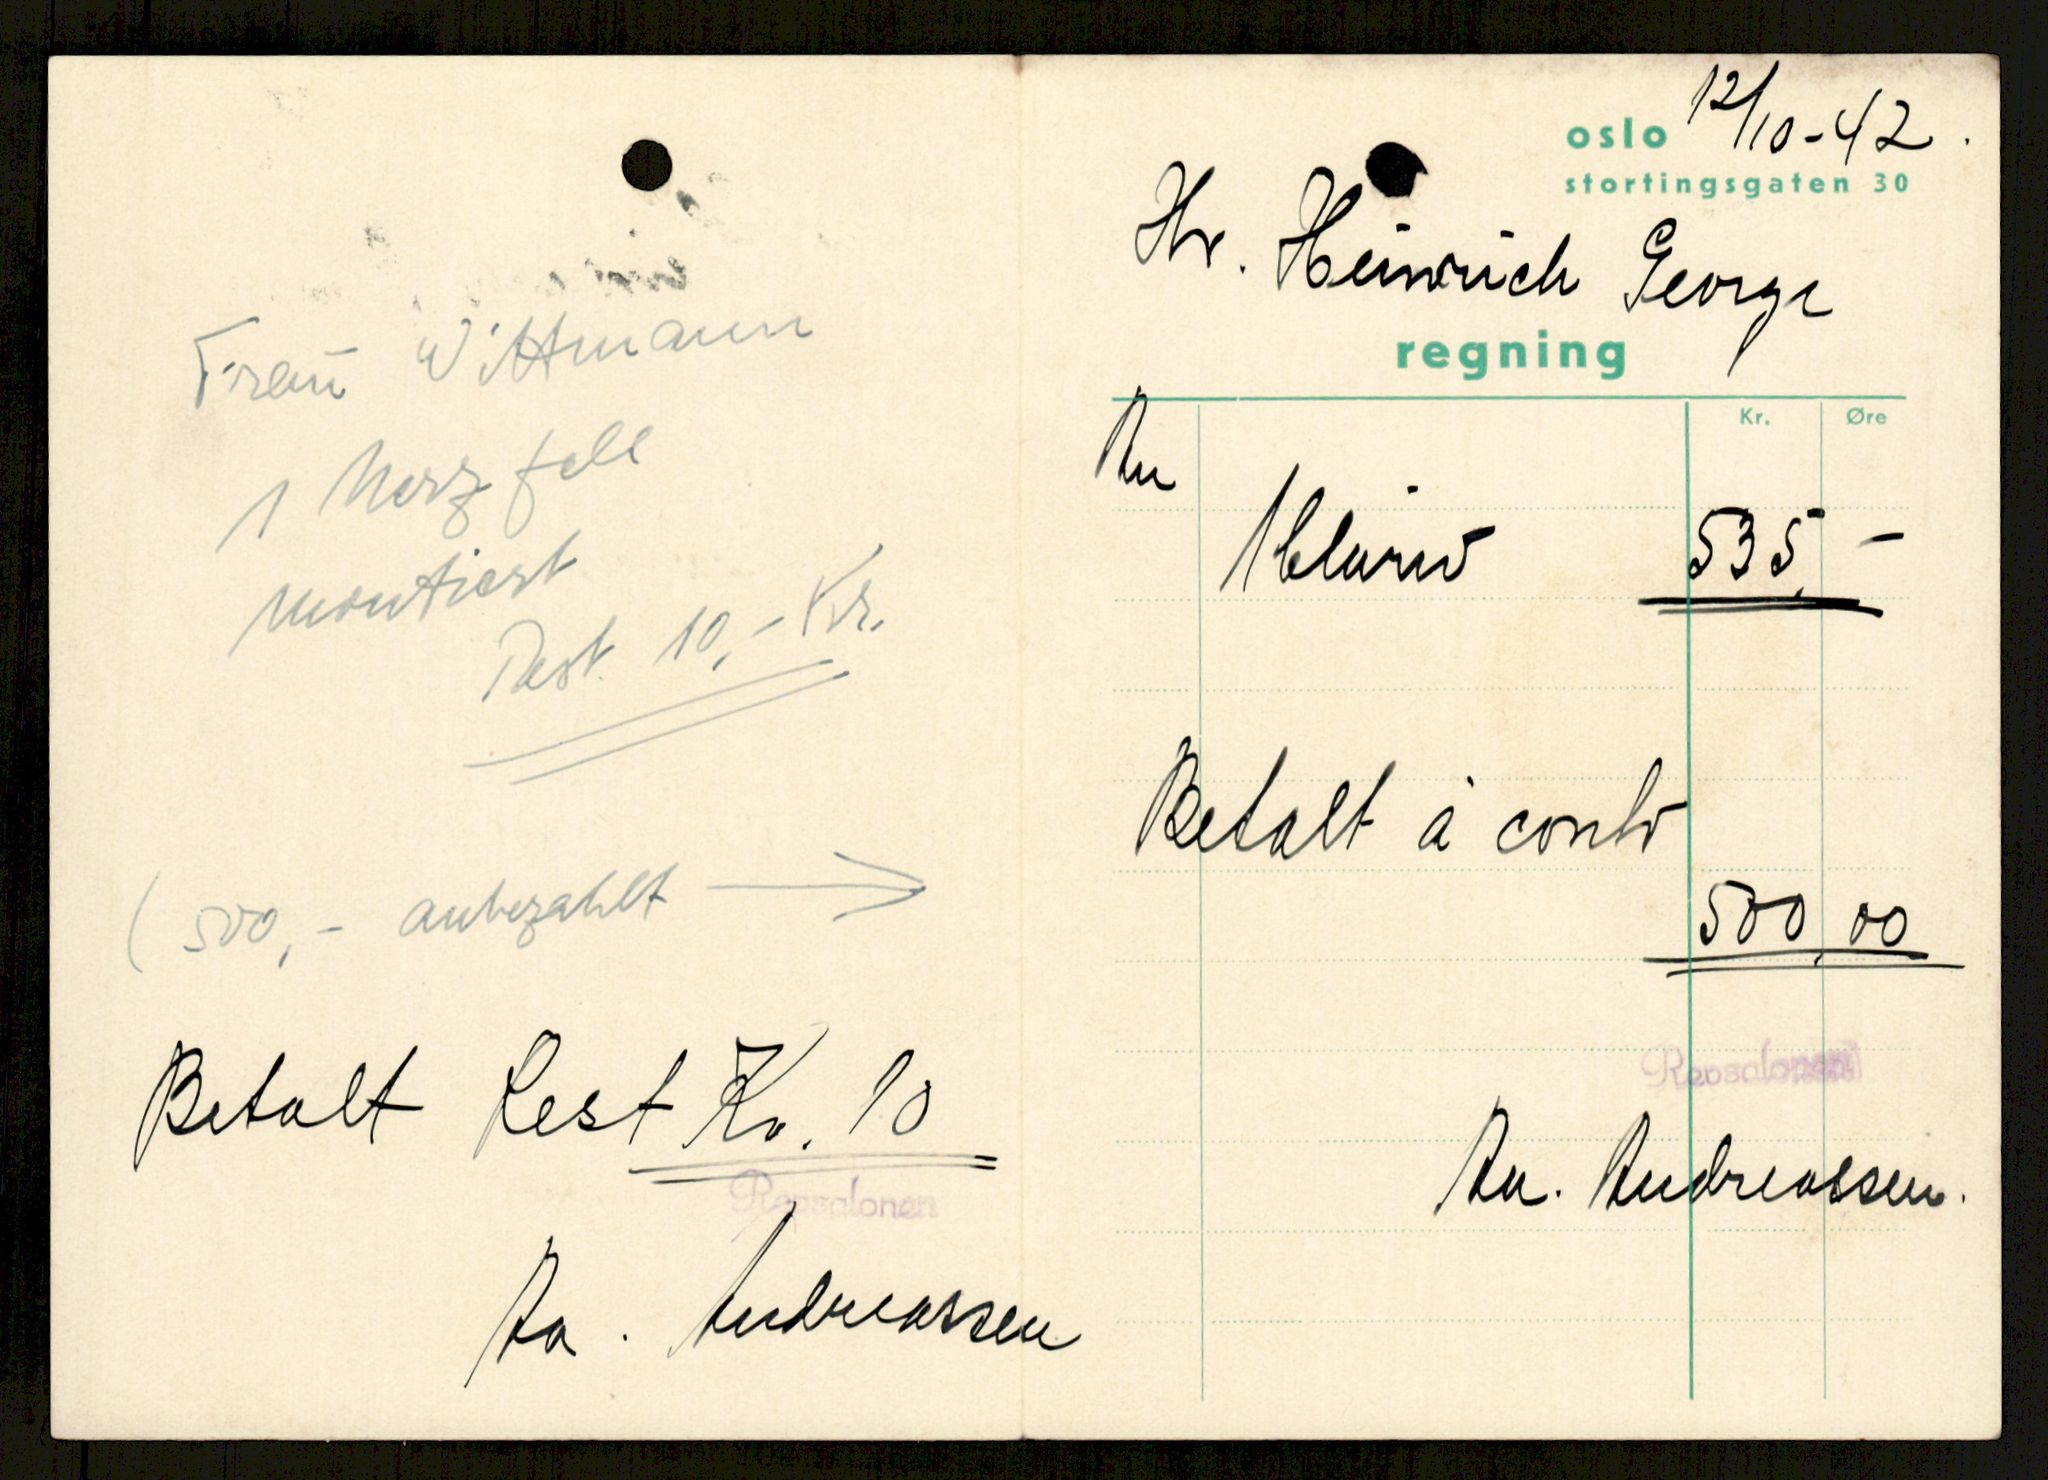 Frau Wittmann
1 Nerzfell
montiert
Rest. 10,- Kr.
( 500,- anbezahlt →
Betalt Rest Kr. 10
Revsalonen
Aa. Andreassen
oslo 12/10-42.
stortingsgaten 30
Hr. Heinrich George
regning
Kr. Øre
535,-
Betalt à conto
500,00
Revsalonen
Aa. Andreassen.